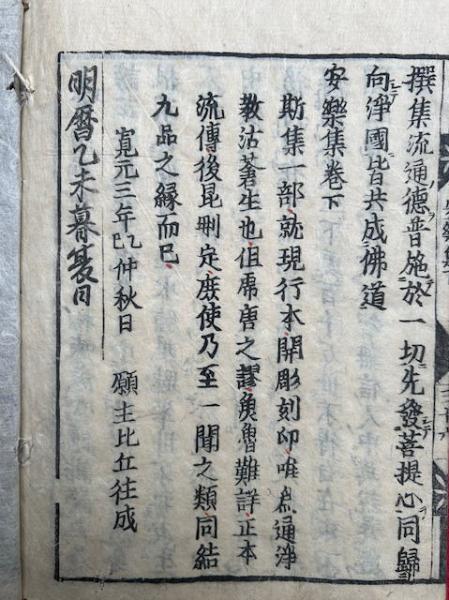 撰集流通德普施於一切先發菩提心同歸
向淨國皆共成佛道
安樂集卷下
斯集一部就現行本開彫刻印唯爲通淨
教沽蒼生也但虎唐之謬魚魯難詳正本
流傳後昆刪定庶使乃至一聞之類同結
九品之縁而已
寛元三年乙巳仲秋日 願主比丘往成
明曆乙未暮夏日